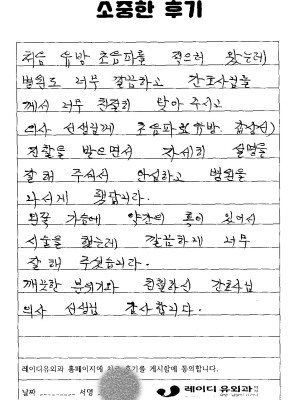 소중한 후기
처음 유방 초음파를 찍으러 왔는데
병원도 너무 깔끔하고 간호사님들
께서 너무 친절히 맞아 주시고
의사 선생님께 초음파(유방. 갑상선)
진찰을 받으면서 자세히 설명을
잘 해 주셔서 안심하고 병원을
나서게 됐답니다.
왼쪽 가슴에 약간의 혹이 있어서
시술을 했는데 깔끔하게 너무
잘 해 주셨습니다.
깨끗한 분위기와 친절하신 간호사님
의사 선생님 감사합니다.
레이디유외과 홈페이지에 후기를 게시함에 동의합니다.
날짜 서명 레이디유외과